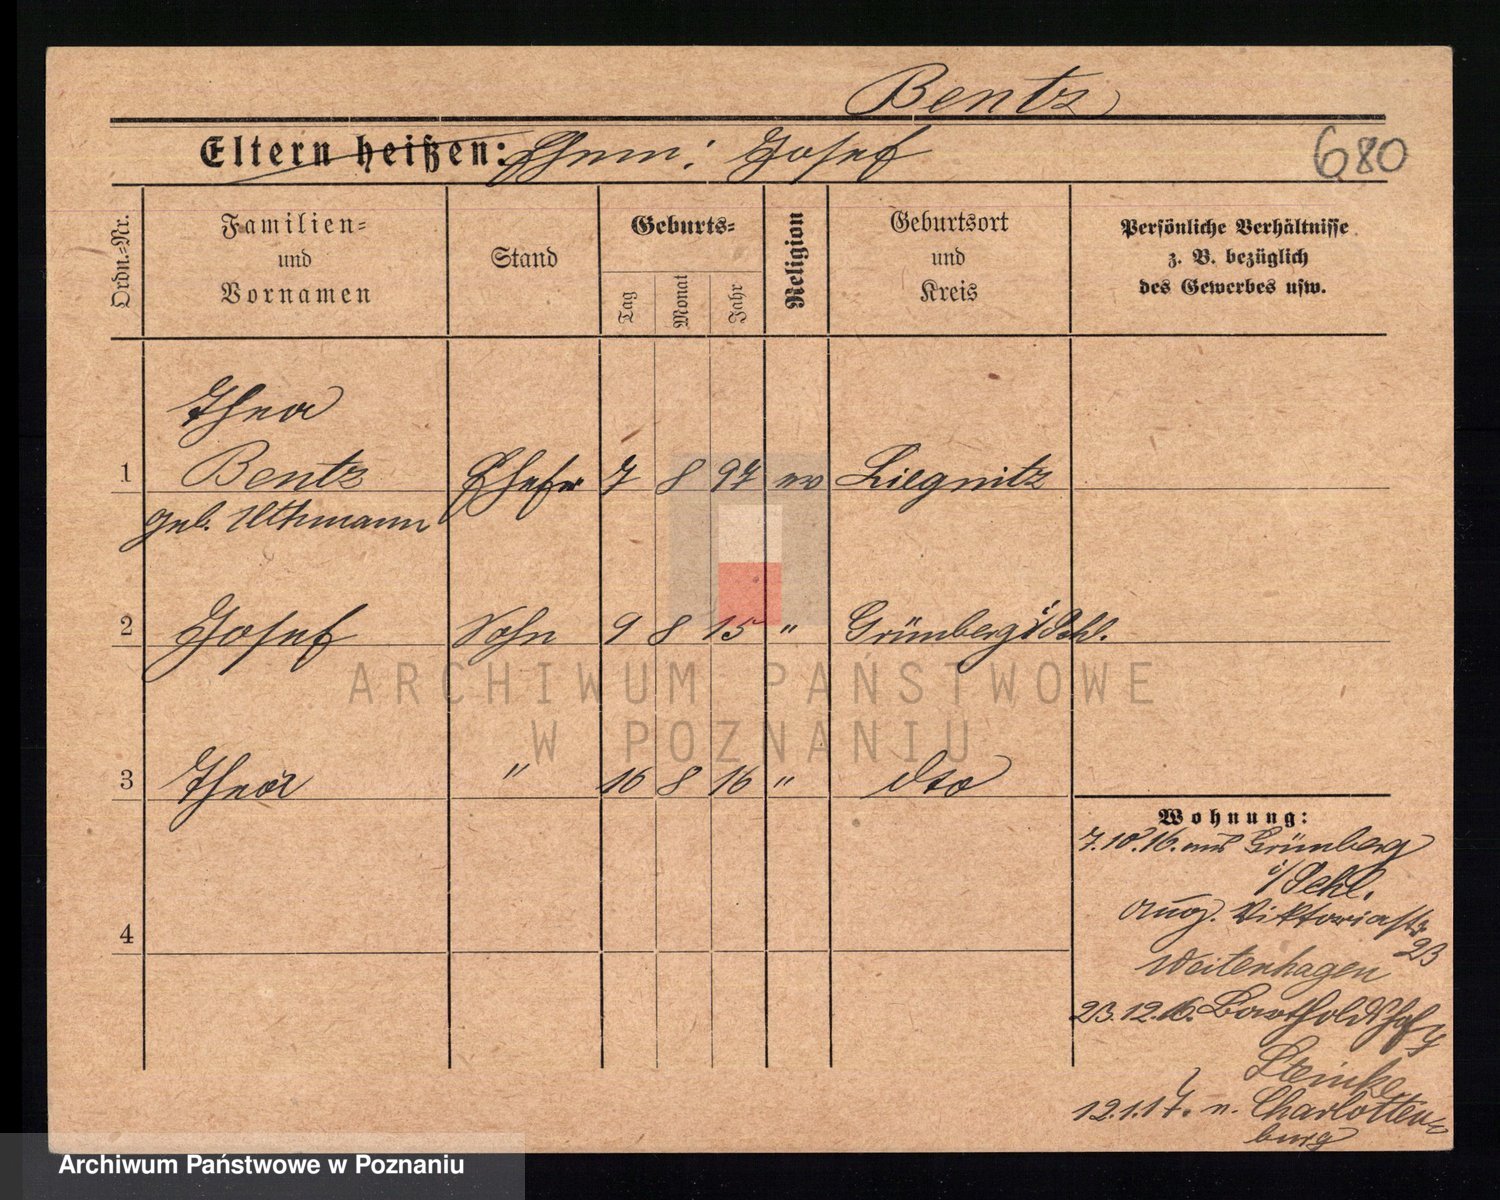 Bentz
Eltern heißen: Ehem: Josef
680
Ordn.=Nr.
Familien=
und
Vornamen
Stand
Geburts=
Tag
Monat
Jahr
Religion
Geburtsort
und
Kreis
Persönliche Verhältnisse
z. B. bezüglich
des Gewerbes usw.
Thea
1 Bentz Ehefr 7 8 97 ev Liegnitz
geb. Uthmann
2 Josef Sohn 9 8 15 " Grünberg i/Schl.
3 Thea " 16 8 16 " dto
4
Wohnung:
7.10.16. aus Grünberg
i/Schl.
Aug. Viktoriastr
23
Weitenhagen
23.12.16. Bartholdshof 4
Steinke
12.1.17. n. Charlotten=
burg
ARCHIWUM PAŃSTWOWE
W POZNANIU
Archiwum Państwowe w Poznaniu